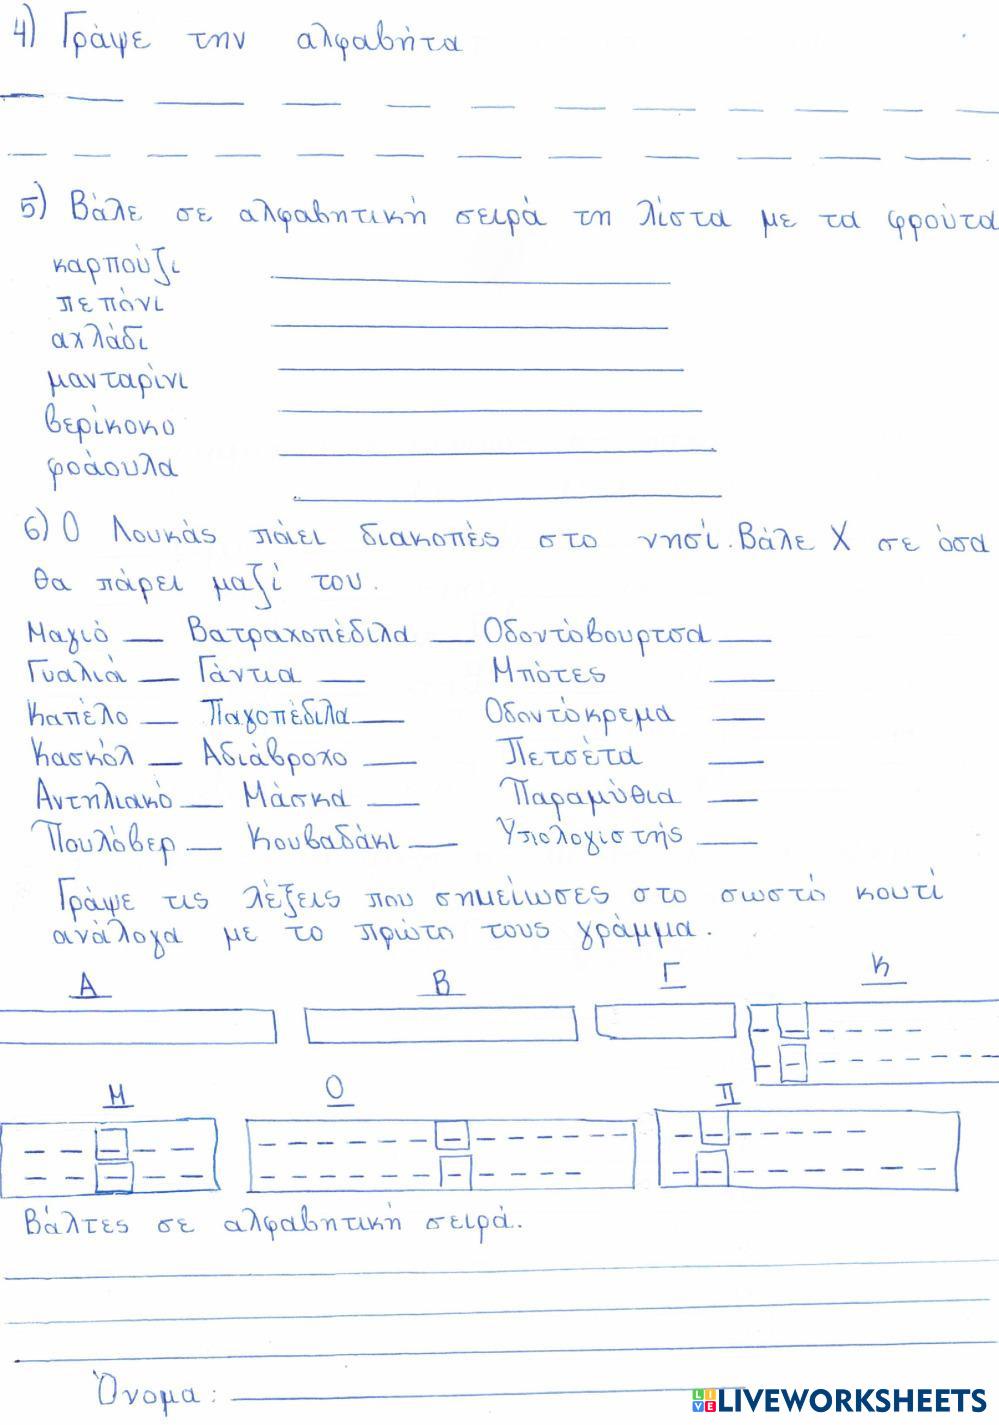 4) Γράψε την αλφαβήτα
5) Βάλε σε αλφαβητική σειρά τη λίστα με τα φρούτα
καρπούζι
πεπόνι
αχλάδι
μανταρίνι
βερίκοκο
φράουλα
6) Ο Λουκάς πάει διακοπές στο νησί. Βάλε Χ σε όσα
θα πάρει μαζί του.
Μαγιό Βατραχοπέδιλα Οδοντόβουρτσα
Γυαλιά Γάντια Μπότες
Καπέλο Παγοπέδιλα Οδοντόκρεμα
Κασκόλ Αδιάβροχο Πετσέτα
Αντηλιακό Μάσκα Παραμύθια
Πουλόβερ Κουβαδάκι Υπολογιστής
Γράψε τις λέξεις που σημείωσες στο σωστό κουτί
ανάλογα με το πρώτο τους γράμμα.
Α Β Γ Κ
Μ Ο Π
Βάλτες σε αλφαβητική σειρά.
Όνομα:
LIVEWORKSHEETS